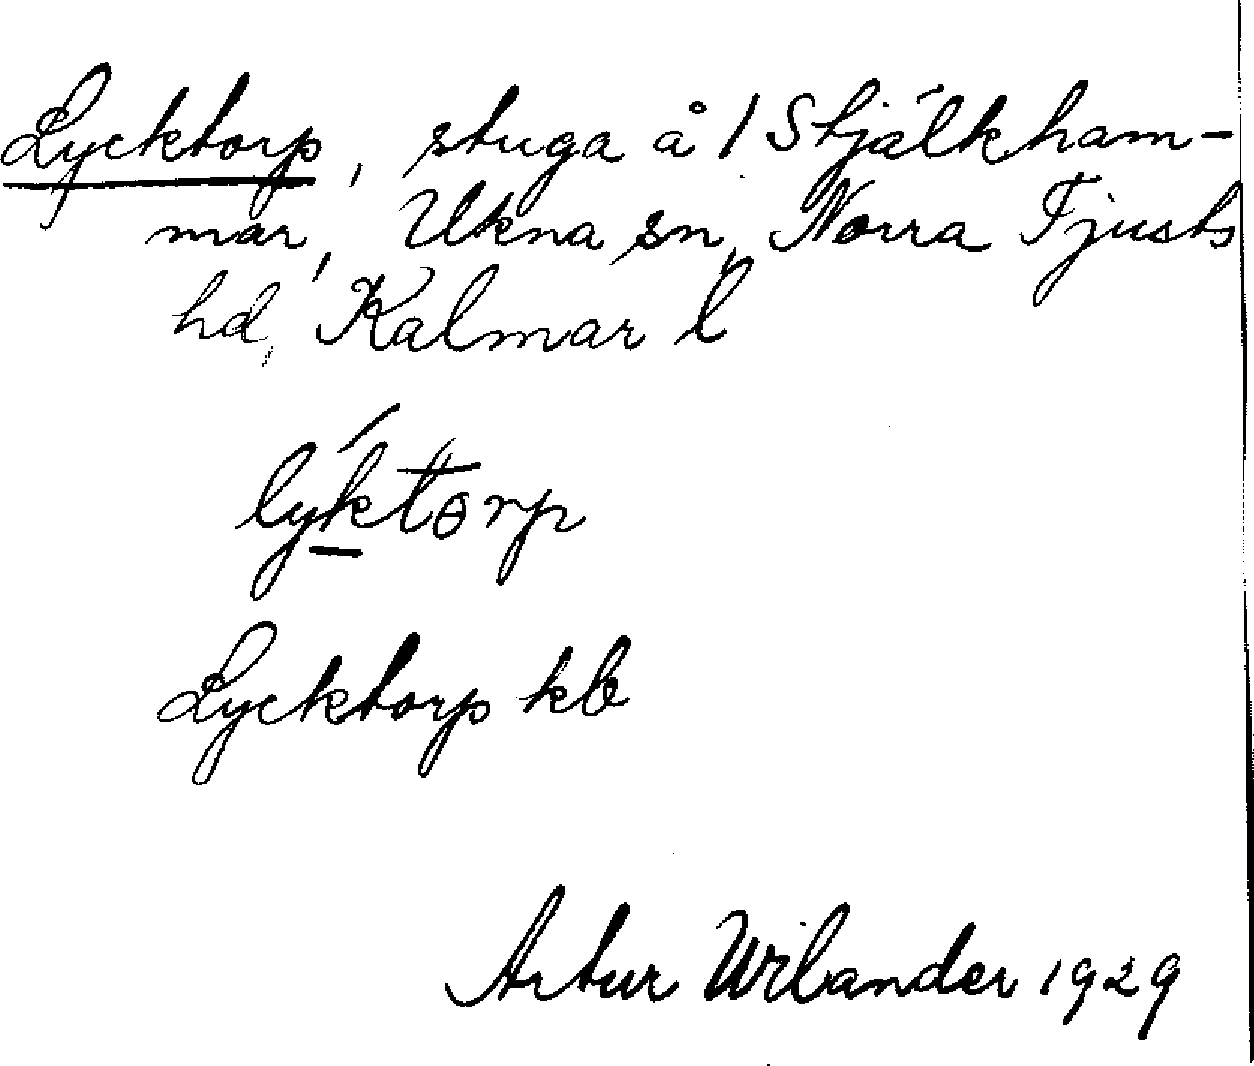 Lycktorp, stuga å 1 Stjälkham-
mar, Ukna sn, Norra Tjusts
hd, Kalmar l
lýktɵrp
Lycktorp kb
Artur Wilander 1929